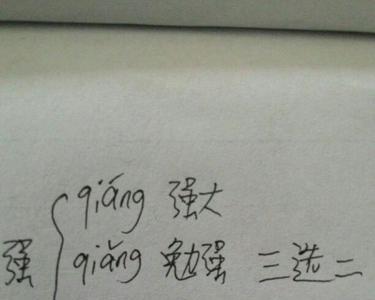 qiáng 强大
强 qiǎng 勉强 三选二